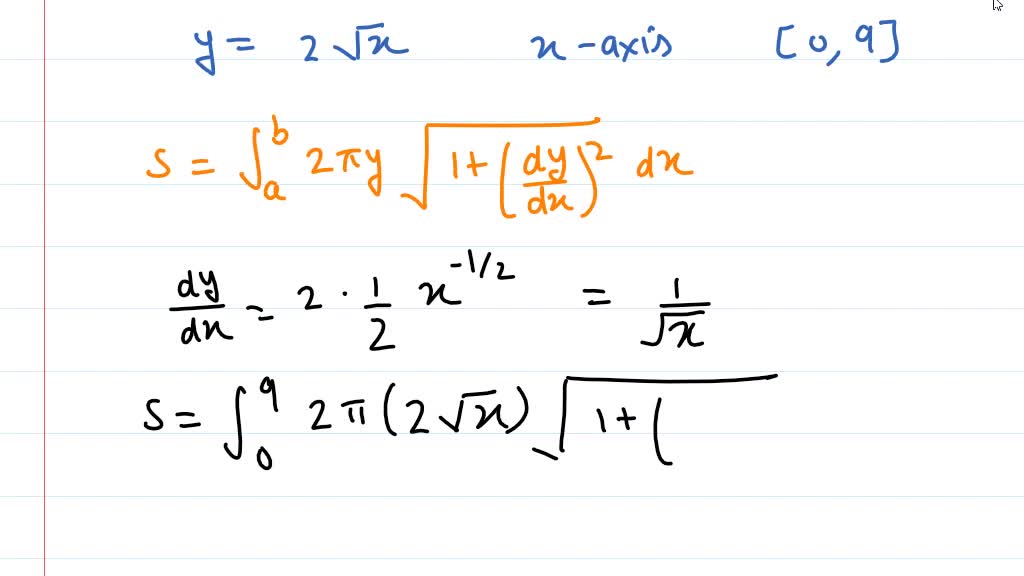 y = 2√x x-axis [0, 9]
S = ∫_a^b 2πy √(1+(dy/dx)^2) dx
dy/dx = 2 · 1/2 x^(-1/2) = 1/√x
S = ∫_0^9 2π(2√x) √(1+(